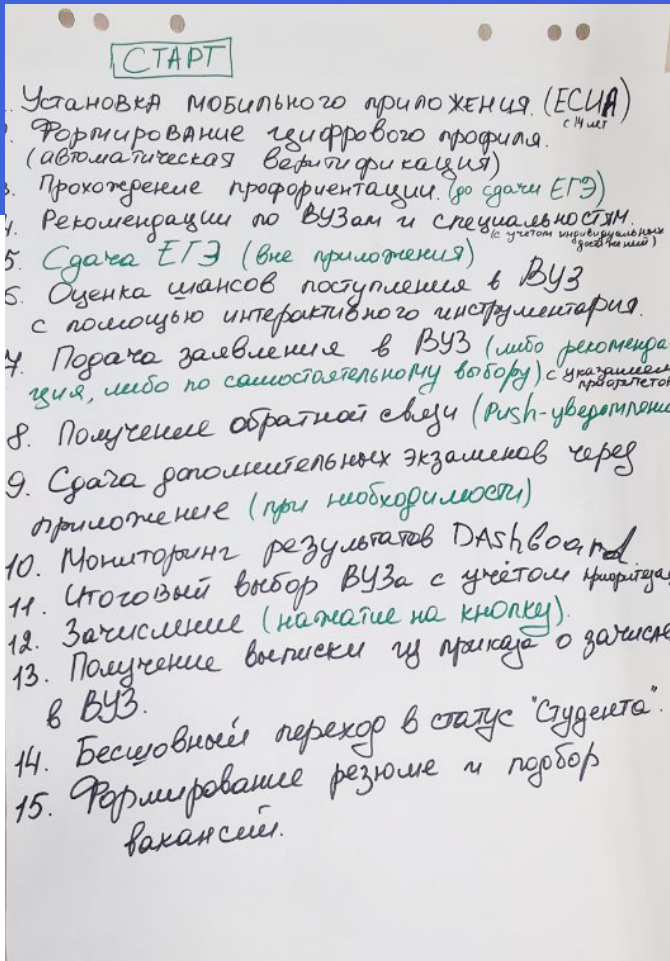 СТАРТ
Установка мобильного приложения. (ЕСИА)
с 14 лет
Формирование цифрового профиля.
(автоматическая верификация)
3. Прохождение профориентации. (до сдачи ЕГЭ)
4. Рекомендации по ВУЗам и специальностям.
(с учетом индивидуальных
достижений)
5. Сдача ЕГЭ (вне приложения)
6. Оценка шансов поступления в ВУЗ
с помощью интерактивного инструментария.
7. Подача заявления в ВУЗ (либо рекоменда-
ция, либо по самостоятельному выбору) с указанием
приоритетов
8. Получение обратной связи (Push-уведомлени
9. Сдача дополнительных экзаменов через
приложение (при необходимости)
10. Мониторинг результатов DAShboard
11. Итоговый выбор ВУЗа с учётом приоритета
12. Зачисление (нажатие на кнопку).
13. Получение выписки из приказа о зачисле
в ВУЗ.
14. Бесшовный переход в статус "Студента".
15. Формирование резюме и подбор
вакансий.